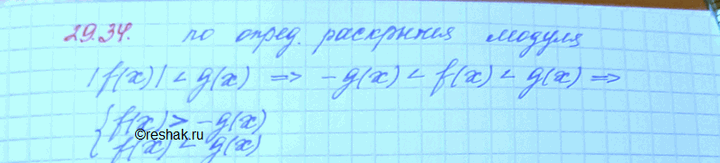 29.34. по опред. раскрытия модуля
|f(x)| < g(x) => -g(x) < f(x) < g(x) =>
{ f(x) > -g(x)
©reshak.ru
f(x) < g(x)